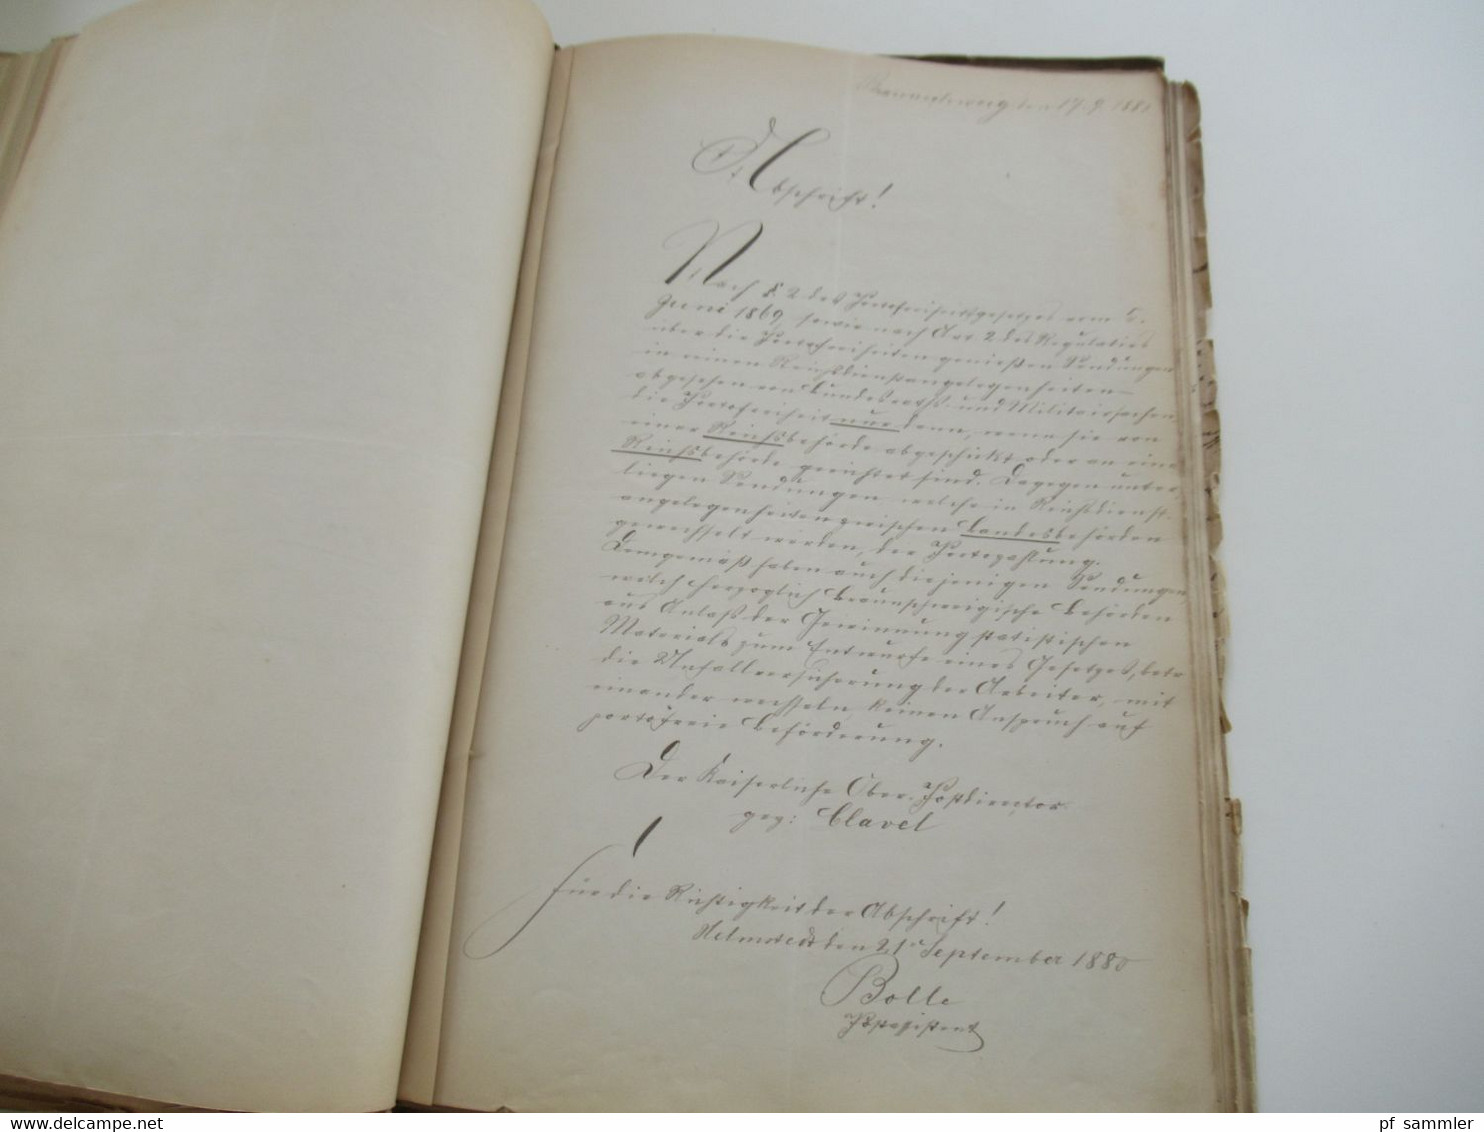 Braunschweig den 17.9.1880
Abschrift!
Nach § 2 des Portofreiheitsgesetzes vom 5.
Juni 1869, sowie nach Art 2 des Regulativs
über die Portofreiheiten genießen Sendungen
in reinen Reichsdienstangelegenheiten –
abgesehen von Bundesraths- und Militairsachen,
die Portofreiheit nur dann, wenn sie von
einer Reichsbehörde abgeschickt oder an eine
Reichsbehörde gerichtet sind. Dagegen unter-
liegen Sendungen welche in Reichsdienst-
angelegenheiten zwischen Landesbehörden
gewechselt werden, der Portozahlung.
Demgemäß haben auch diejenigen Sendungen,
welch herzoglich Braunschweigische Behörden
aus Anlaß der Gewinnung statistischen
Materials zum Entwurfe eines Gesetzes, betr
die Unfallversicherung der Arbeiter, mit
einander wechseln, keinen Anspruch auf
portofreie Beförderung.
Der Kaiserliche Ober-Postdirector
gez: Clavel
Für die Richtigkeit der Abschrift!
Helmstedt den 21t September 1880
Bolle
Postassistent
pf sammler